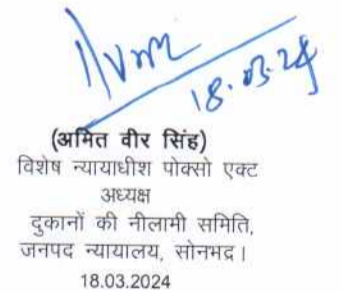 18.03.24
(अमित वीर सिंह)
विशेष न्यायाधीश पोक्सो एक्ट
अध्यक्ष
दुकानों की नीलामी समिति,
जनपद न्यायालय, सोनभद्र।
18.03.2024